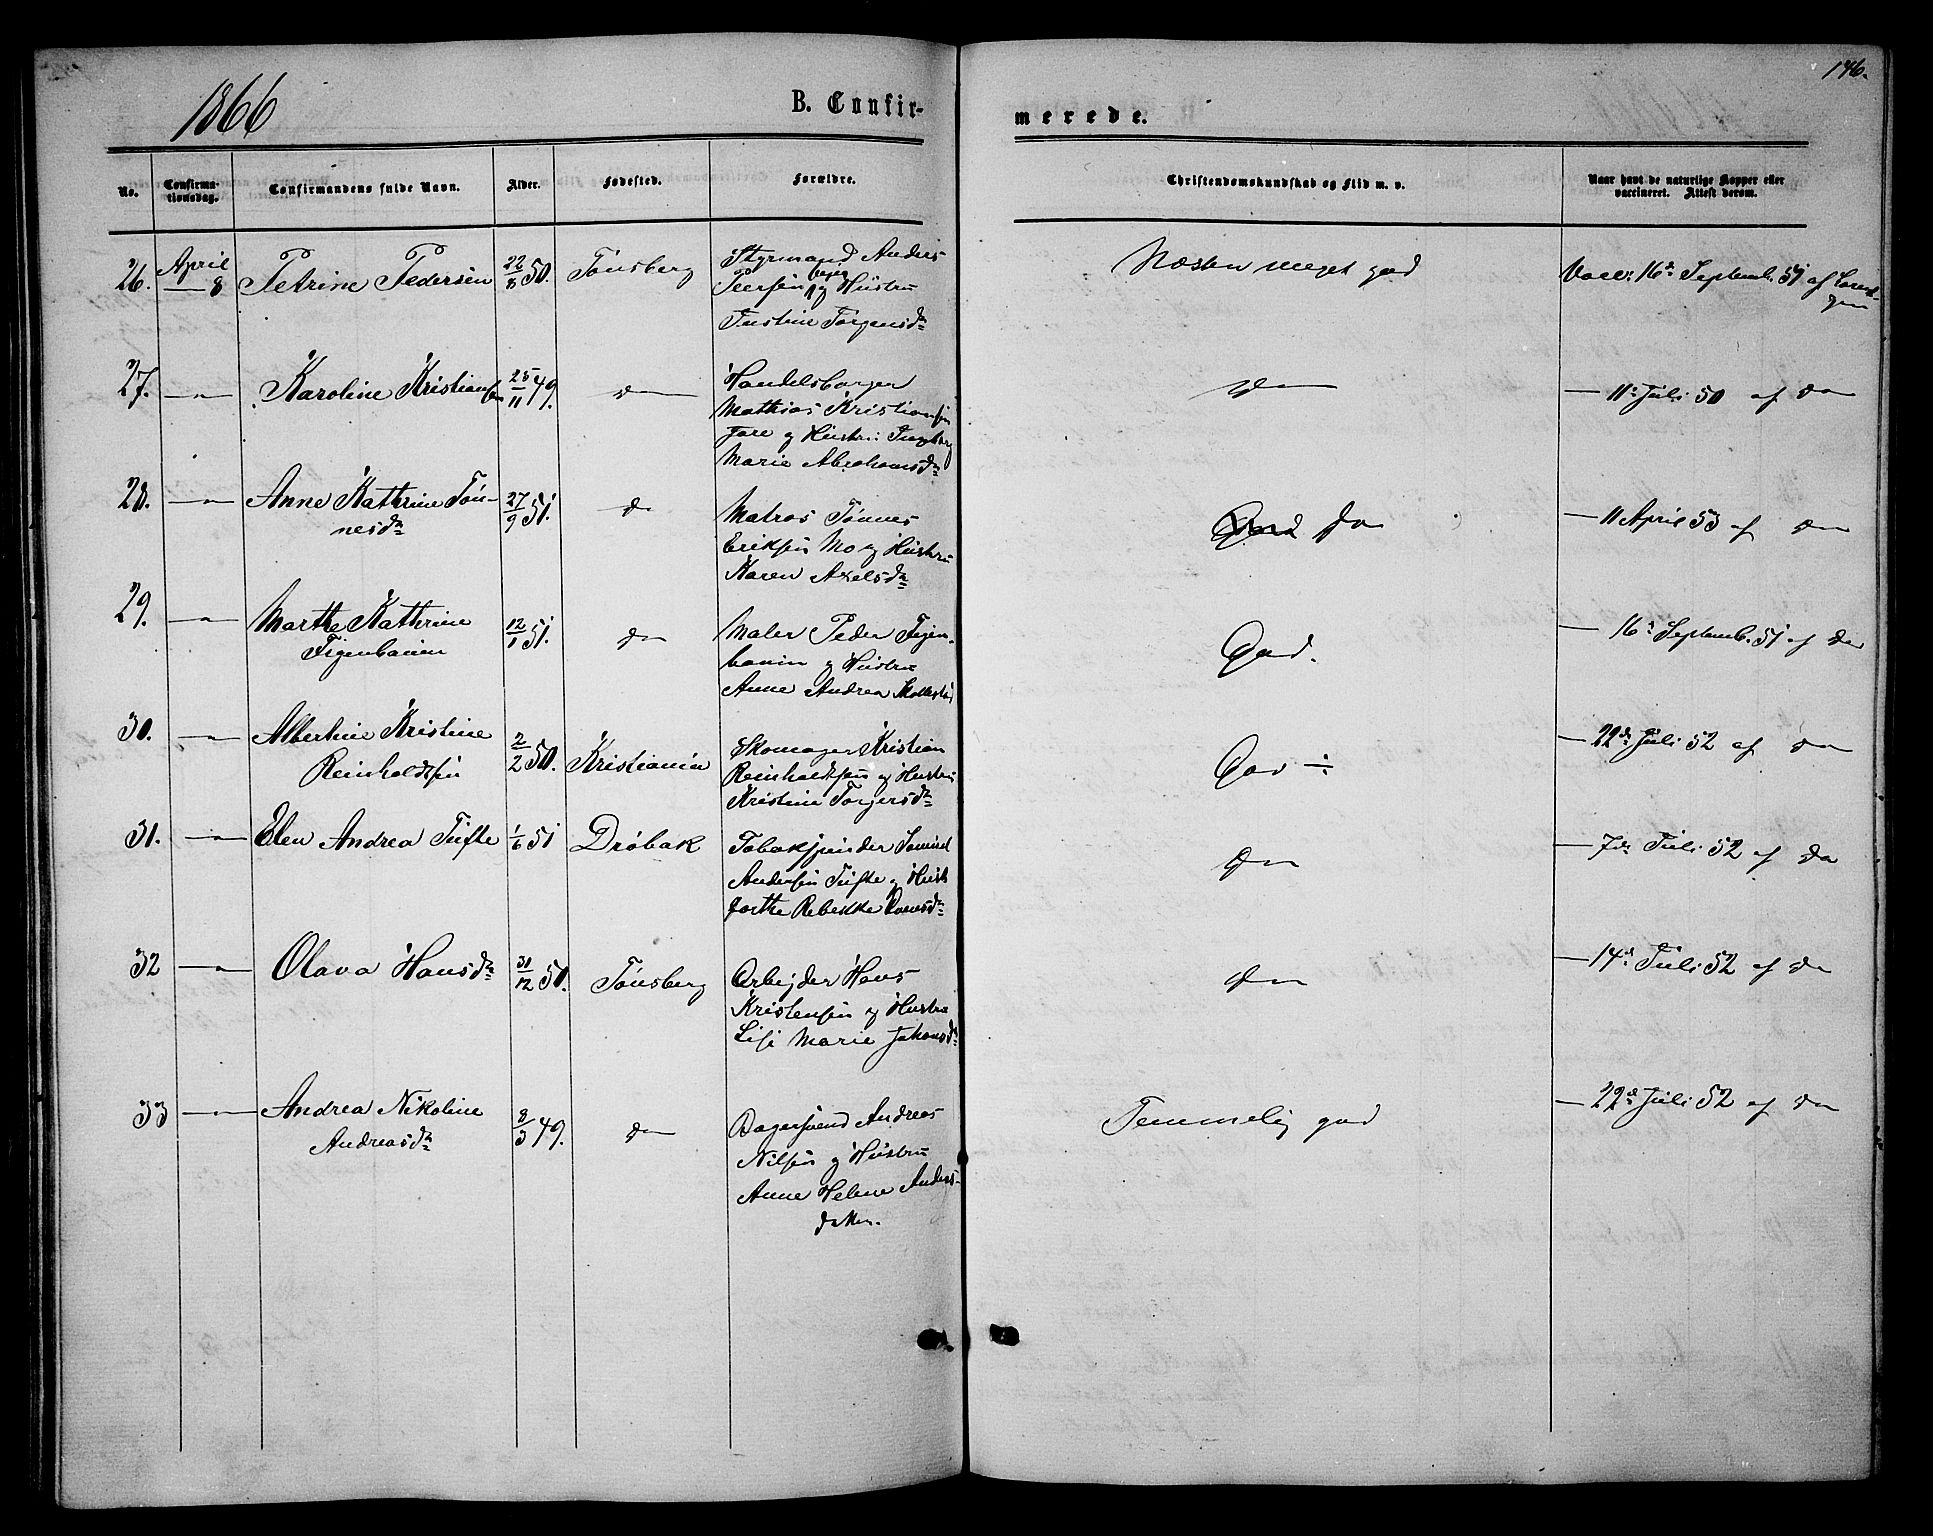 146.
1866
B. Confir-
merede.
No.
Confirma-
tionsdag.
Confirmandens fulde Navn.
Alder.
Fødested.
Forældre.
Christendomskundskab og Flid m. v.
Naar havt de naturlige Kopper eller
vaccineret. Attest derom.
26. April 8 Petrine Pedersen 22/8 50. Tönsberg
Styrmand Anders
Peersen og Hustru
Justine Jörgensdr
Næsten meget god
Vacc. 16de Septemb. 51 af
27. —"— Karoline Kristiansen 25/11 49. do
Handelsborger
Mathias Kristiansen
Fare og Hustru Ingeborg
Marie Abrahamsdr
do
— 11te Juli 50 af do
28. —"— Anne Kathrine Tön-
nesdr
27/9 51. do
Matros Tönnes
Eriksen Mo og Hustru
Karen Axelsdr
God do
— 11 April 53 af do
29. —"— Marthe Kathrine
Figenbaum
12/1 51. do
Maler Peder Figen-
baum og Hustru
Anne Andrea
God.
— 16de Septemb. 51 af do
30. —"— Albertine Kristine
Reinholdtsen
2/2 50. Kristiania
Skomager Kristian
Reinholdtsen og Hustru
Kristine Torgersdr
God ÷
— 22de Juli 52 af do
31. —"— Elen Andrea Tufte 1/6 51 Dröbak
Tobakspinder
Andersen Tufte og Hustr
Dorthe Rebekke
do
— 7de Juli 52 af do
32 —"— Olava Hansdr 31/12 50. Tönsberg
Arbejder Hans
Kristensen og Hustru
Lise Marie Johansdr
do
— 14de Juli 52 af do
33 —"— Andrea Nikoline
Andreasdr
8/3 49. do
Bagersvend Andreas
Nilsen og Hustru
Anne Helene Anders-
datter.
Temmelig god
— 22de Juli 52 af do